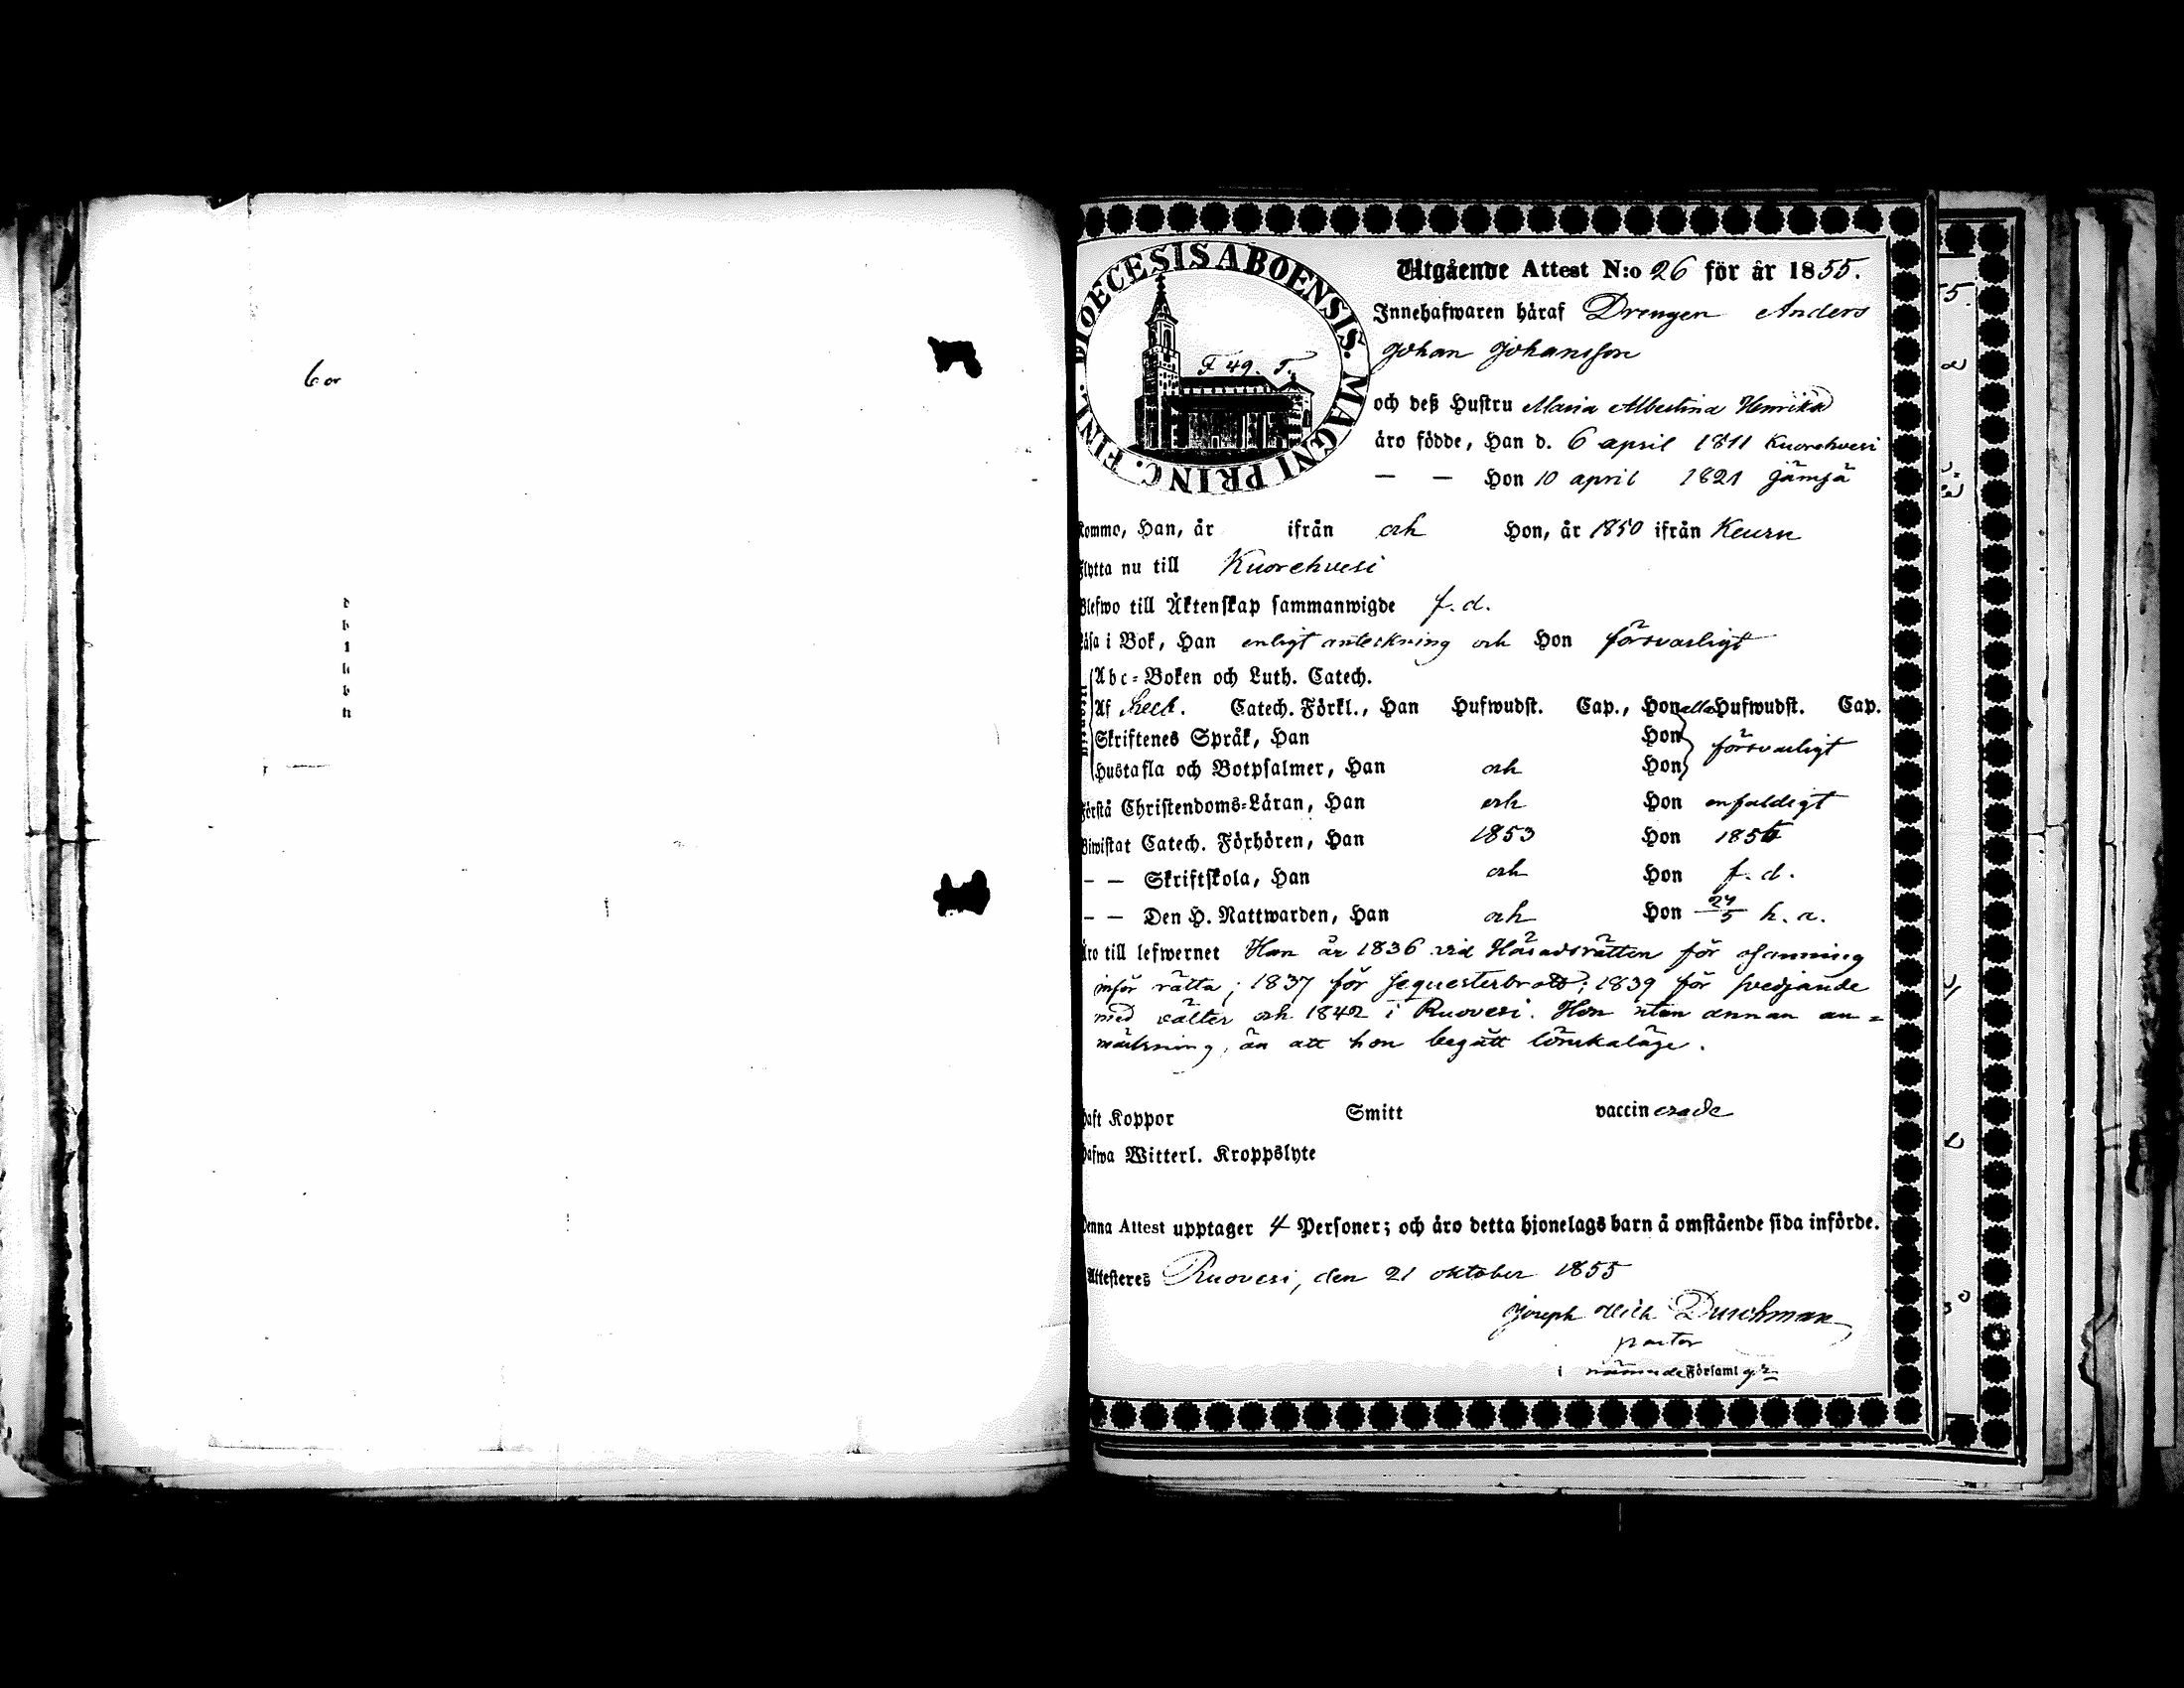 DIOECESIS ABOENSIS. MAGNI PRINC. FINL.
F 49. T.
Utgående Attest N:o 26 för år 1855.
Innehafwaren häraf Drengen Anders
Johan Johansson
och deß Hustru Maria Albertina Henrika
äro födde, Han d. 6 april 1811 Kuorehvesi
— — Hon 10 april 1821 Jämsä
Kommo, Han, år ifrån och Hon, år 1850 ifrån Keuru
Flytta nu till Kuorehvesi
Blefwo till Äktenskap sammanwigde f. d.
Läsa i Bok, Han enligt anteckning och Hon försvarligt
Abc-Boken och Luth. Catech.
Af Catech. Förkl., Han Hufwudst. Cap., Hon alla Hufwudst. Cap.
Skriftenes Språk, Han Hon försvarligt
Hustafla och Botpsalmer, Han och Hon
Förstå Christendoms-Läran, Han och Hon enfaldigt
Biwistat Catech. Förhören, Han 1853 Hon
— — Skriftskola, Han och Hon f. d.
— — Den H. Nattwarden, Han och Hon 24/5 h. a.
Äro till lefwernet Han är 1836 vid Häradsrätten för osanning
inför rätta; 1837 för sequesterbrott; 1839 för svedjande
med och 1842 i Ruovesi. Hon utan annan an=
märkning, än att hon begått lönskaläge.
Haft Koppor Smitt vaccinerade
Hafwa Witterl. Kroppslyte
Denna Attest upptager 4 Personer; och äro detta hjonelags barn å omstående sida införde.
Attesteres Ruovesi, den 21 oktober 1855
Joseph Mich Duschman
pastor
i nämnde Församl